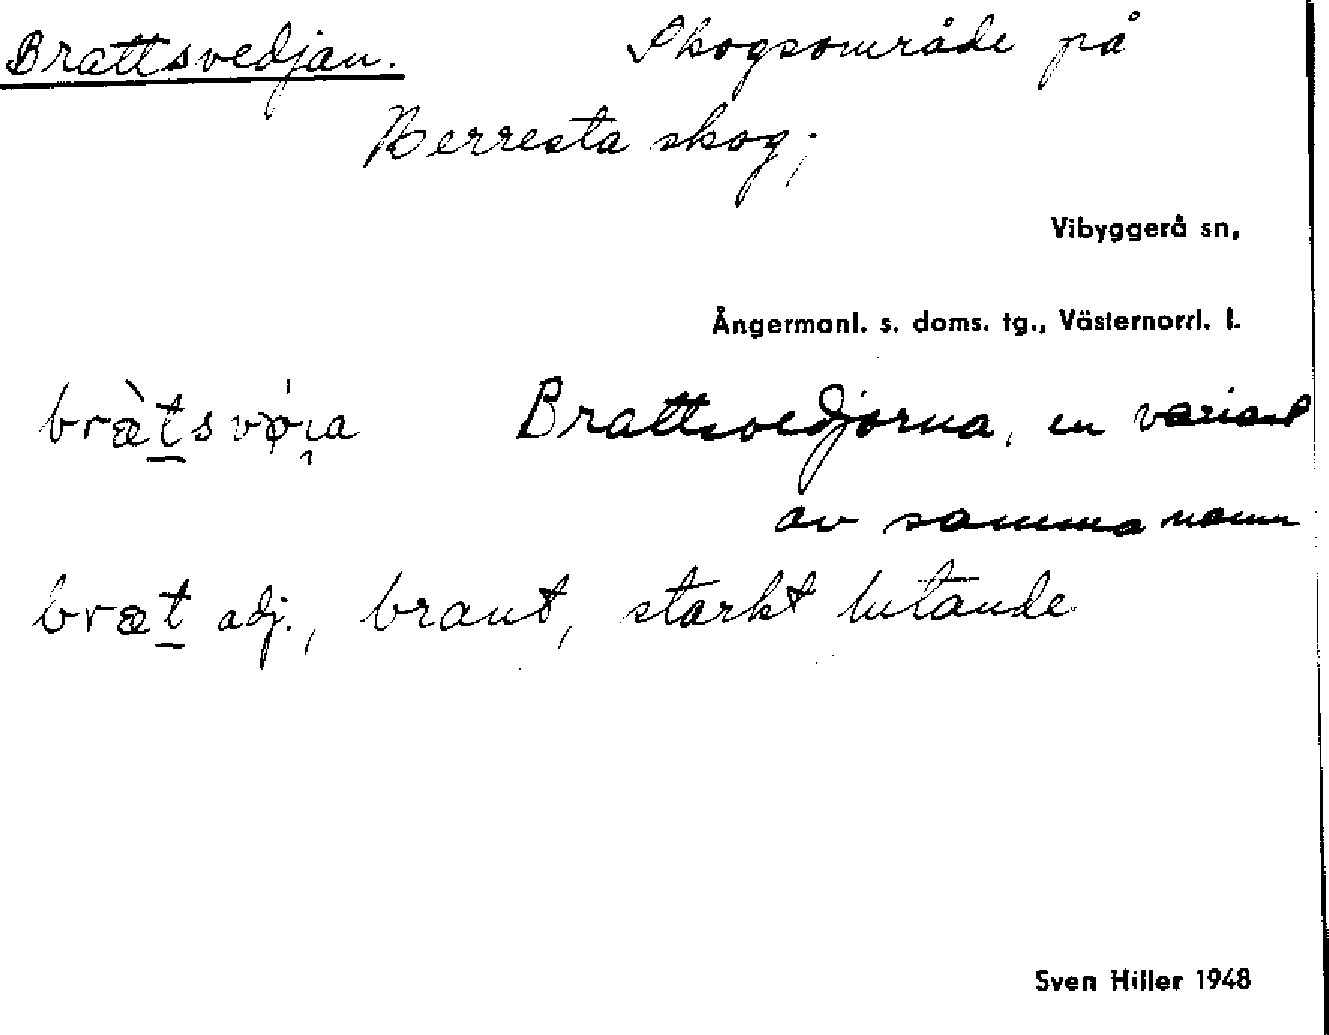 Brattsvedjan. Skogsområde på
Berresta skog;
Vibyggerå sn,
Ångermanl. s. doms. tg., Västernorrl. l.
bræ̀t̲svø̀ɹa Brattsvedjorna, en variant
av samma namn
bræt̲ adj., brant, starkt lutande
Sven Hiller 1948